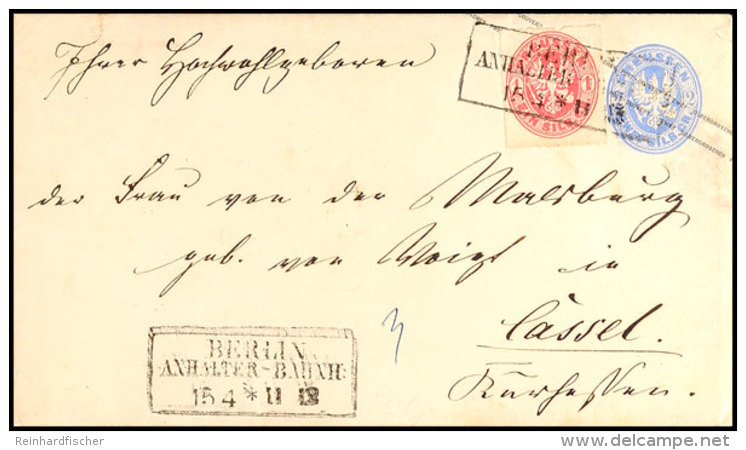 Ihrer Hochwohlgeboren
BER
ANHALTER
15 4 * 11
PREUSSEN
EIN SILB
der Frau von der Malsburg
geb. von Voigt in
Cassel.
Kurhessen.
BERLIN
ANHALTER-BAHNH:
15 4 * 11 12
Reinhardfischer
delcampe.net